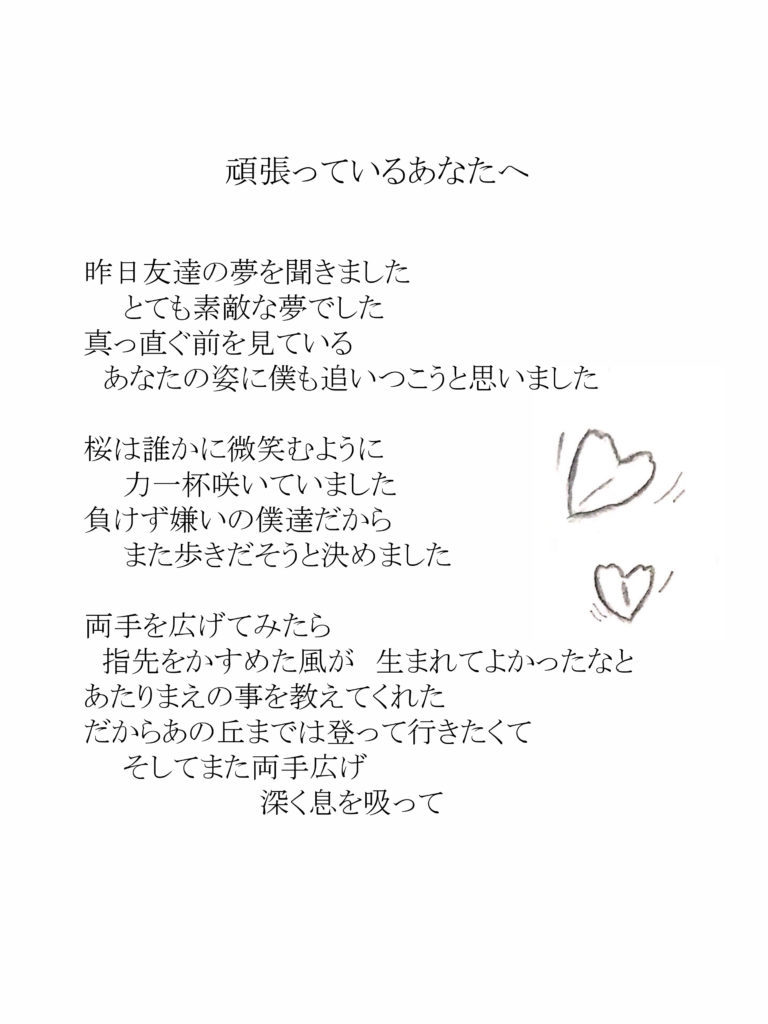 頑張っているあなたへ
昨日友達の夢を聞きました
とても素敵な夢でした
真っ直ぐ前を見ている
あなたの姿に僕も追いつこうと思いました
桜は誰かに微笑むように
力一杯咲いていました
負けず嫌いの僕達だから
また歩きだそうと決めました
両手を広げてみたら
指先をかすめた風が　生まれてよかったなと
あたりまえの事を教えてくれた
だからあの丘までは登って行きたくて
そしてまた両手広げ
深く息を吸って